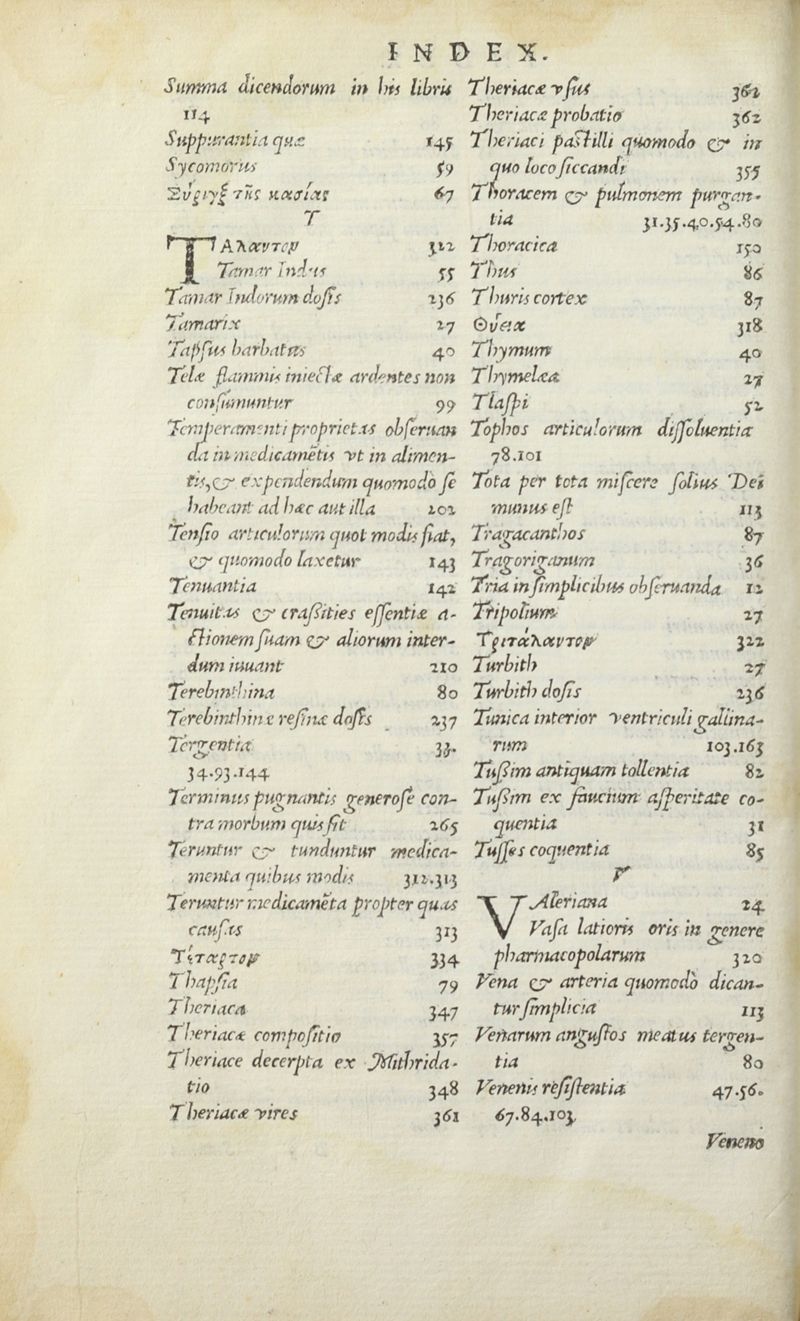 INDEX.
Summa dicendorum in his libris
114
Suppurantia quæ 145
Sycomorus 59
Σύριγξ τῆς κασίας 67
T
TΑλαντον 322
Tamar Indus 55
Tamar Indorum dosis 236
Tamarix 27
Tapsus barbatus 40
Telæ flammis iniectæ ardentes non
consumuntur 99
Temperamenti proprietas obseruan
da in medicamētis vt in alimen-
tis, & expendendum quomodò se
habeant ad hæc aut illa 202
Tensio articulorum quot modis fiat,
& quomodo laxetur 143
Tenuantia 142
Tenuitas & craßities essentiæ a-
ctionem suam & aliorum inter-
dum iuuant 210
Terebinthina 80
Terebinthinæ resinæ dosis 237
Tergentia 33.
34.93.144
Terminus pugnantis generose con-
tra morbum quis sit 265
Teruntur & tunduntur medica-
menta quibus modis 312.313
Teruntur medicamēta propter quas
causas 313
334
Thapsia 79
Theriaca 347
Theriacæ compositio 357
Theriace decerpta ex Mithrida-
tio 348
Theriacæ vires 361
Theriacæ vsus 362
Theriacæ probatio 362
Theriaci pastilli quomodo & in
quo loco siccandi 355
Thoracem & pulmonem purgan-
tia 31.35.40.54.80
Thoracica 150
Thus 86
Thuris cortex 87
Θυεία 318
Thymum 40
Thymelæa 27
Tlaspi 52
Tophos articulorum dissoluentia
78.101
Tota per tota miscere solius Dei
munus est 113
Tragacanthos 87
Tragoriganum 36
Tria in simplicibus obseruanda 12
Tripolium 27
Τριτάλαντον 322
Turbith 27
Turbith dosis 236
Tunica interior ventriculi gallina-
rum 103.163
Tußim antiquam tollentia 82
Tußim ex faucium asperitate co-
quentia 31
Tusses coquentia 85
V
VAleriana 24
Vasa latioris oris in genere
pharmacopolarum 320
Vena & arteria quomodò dican-
tur simplicia 113
Venarum angustos meatus tergen-
tia 80
Venenis resistentia 47.56.
67.84.103.
Veneno